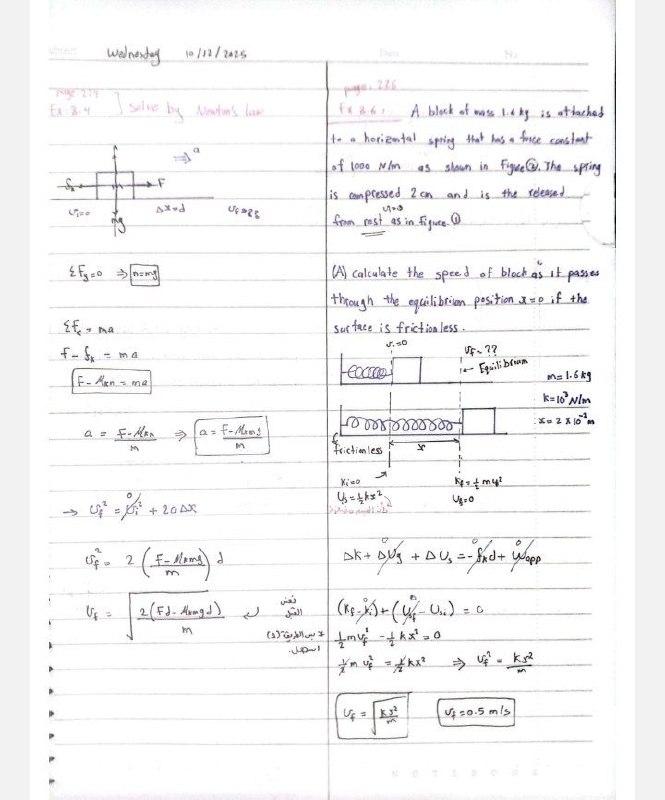 Wednesday 10/12/2025
Ex 8.4 } solve by Newton's law
⇒ a
fₖ F
mg
Vᵢ=0 Δx=d
ΣFy=0 ⇒ n=mg
ΣFₓ = ma
F - fₖ = ma
F - Mₖn = ma
a = F-Mₖn / m ⇒ a = F-Mₖmg / m
→ Vf² = Vᵢ² + 2aΔx
0
Vf² = 2 (F-Mₖmg / m) d
Vf = √ 2(Fd-Mₖmgd) / m
نفس
(2)
اسهل
Ex 8.6: A block of mass 1.6 kg is attached
to a horizontal spring that has a force constant
of 1000 N/m as shown in Figure②. The spring
is compressed 2 cm and is the released
Vᵢ=0
from rest as in Figure.①
(A) calculate the speed of block as it passes
through the equilibrium position x=0 if the
surface is frictionless.
Vᵢ=0 Vf=??
← Equilibrium
m=1.6 kg
k=10³ N/m
x=2×10⁻² m
frictionless
x
Kᵢ=0 Kf=½mv²
Us=½kx² Us=0
ΔK + ΔUg + ΔUs = -fₖd + Wapp
0 0 0
(Kf - Kᵢ) + (Usf - Usᵢ) = 0
½mVf² - ½kx² = 0
½mVf² = ½kx² ⇒ Vf² = kx² / m
Vf = √ kx² / m Vf=0.5 m/s
NOTEBOOK